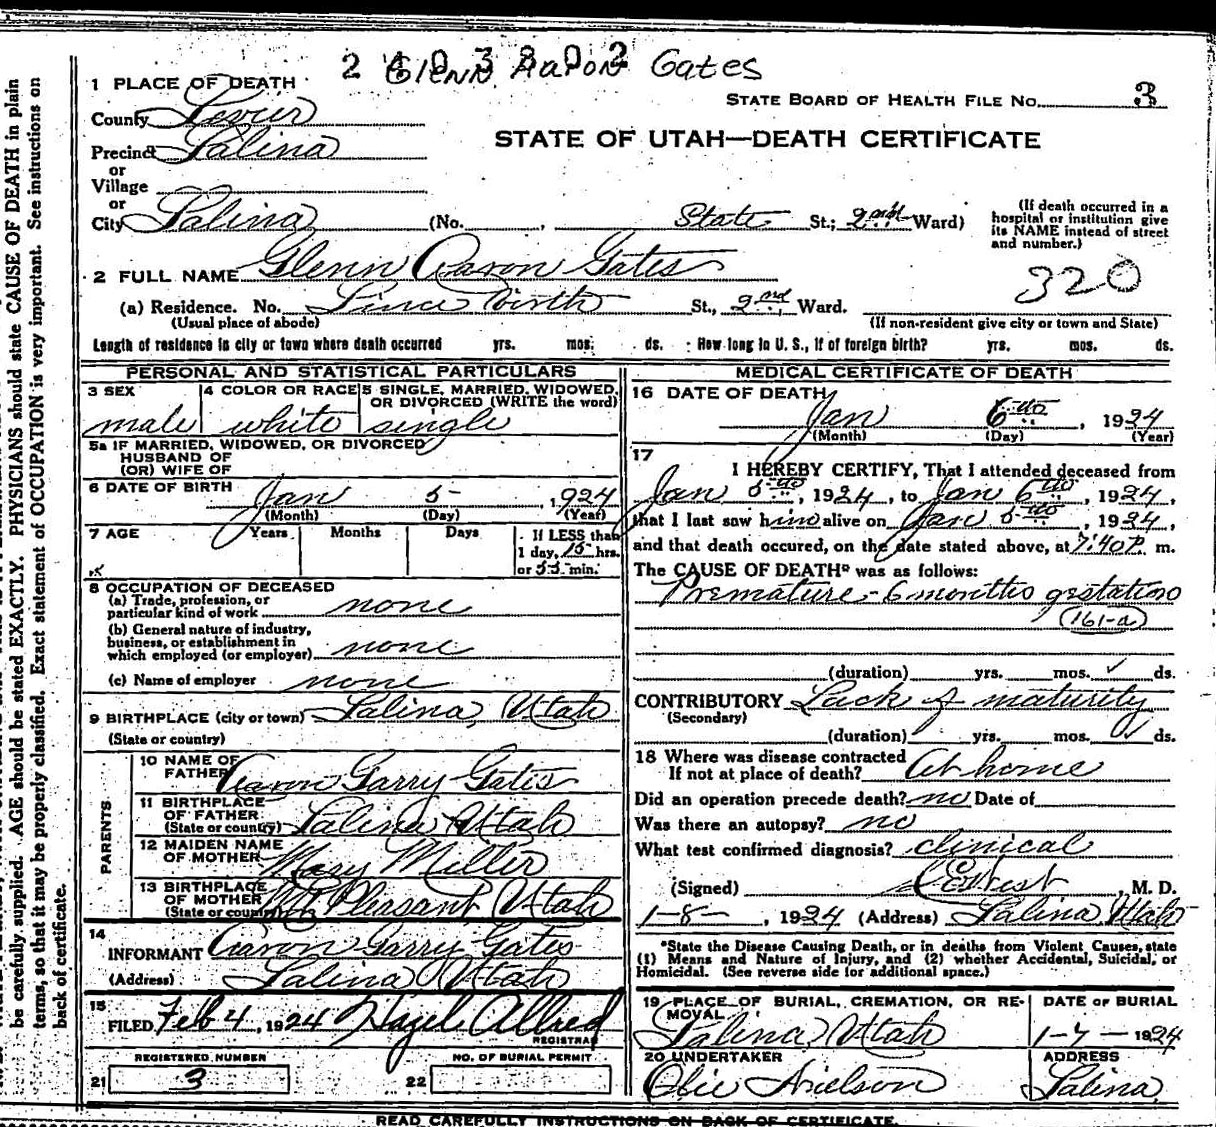 2403802
Glenn Aaron Gates
1 PLACE OF DEATH
STATE BOARD OF HEALTH FILE NO. 3
County Sevier
STATE OF UTAH—DEATH CERTIFICATE
Precinct Salina
or
Village
or
City Salina (No. , State St.; 2nd Ward)
(If death occurred in a hospital or institution give its NAME instead of street and number.)
2 FULL NAME Glenn Aaron Gates
320
(a) Residence. No. Since Birth St., 2nd Ward.
(Usual place of abode) (If non-resident give city or town and State)
Length of residence in city or town where death occurred yrs. mos. ds. How long in U. S., if of foreign birth? yrs. mos. ds.
PERSONAL AND STATISTICAL PARTICULARS
3 SEX male
4 COLOR OR RACE white
5 SINGLE, MARRIED, WIDOWED, OR DIVORCED (WRITE the word) single
5a IF MARRIED, WIDOWED, OR DIVORCED
HUSBAND OF
(OR) WIFE OF
6 DATE OF BIRTH Jan 5 , 1924
(Month) (Day) (Year)
7 AGE Years Months Days If LESS than
1 day, 15 hrs.
or 55 min.
8 OCCUPATION OF DECEASED
(a) Trade, profession, or
particular kind of work none
(b) General nature of industry,
business, or establishment in
which employed (or employer) none
(c) Name of employer none
9 BIRTHPLACE (city or town) Salina, Utah
(State or country)
PARENTS
10 NAME OF
FATHER Aaron Garry Gates
11 BIRTHPLACE
OF FATHER
(State or country) Salina Utah
12 MAIDEN NAME
OF MOTHER Mary Miller
13 BIRTHPLACE
OF MOTHER
(State or country) Mt Pleasant Utah
14
INFORMANT Aaron Garry Gates
(Address) Salina Utah
15
FILED Feb 4, 1924 Hazel Allred
REGISTRAR
REGISTERED NUMBER NO. OF BURIAL PERMIT
21 3 22
MEDICAL CERTIFICATE OF DEATH
16 DATE OF DEATH
Jan 6th , 1924
(Month) (Day) (Year)
17
I HEREBY CERTIFY, That I attended deceased from
Jan 5th, 1924, to Jan 6th, 1924,
that I last saw him alive on Jan 5th, 1924,
and that death occured, on the date stated above, at 7:40 P. m.
The CAUSE OF DEATH* was as follows:
Premature - 6 months gestation
161-a
(duration) yrs. mos. ds.
CONTRIBUTORY Lack of maturity
(Secondary)
(duration) yrs. mos. ds.
18 Where was disease contracted
If not at place of death? At home
Did an operation precede death? no Date of
Was there an autopsy? no
What test confirmed diagnosis? clinical
(Signed) West, M. D.
1-8-, 1924 (Address) Salina, Utah
*State the Disease Causing Death, or in deaths from Violent Causes, state
(1) Means and Nature of Injury, and (2) whether Accidental, Suicidal, or
Homicidal. (See reverse side for additional space.)
19 PLACE OF BURIAL, CREMATION, OR RE-
MOVAL Salina, Utah
DATE OF BURIAL
1-7-1924
20 UNDERTAKER
Obie Nielson
ADDRESS
Salina
READ CAREFULLY INSTRUCTIONS ON BACK OF CERTIFICATE.
be carefully supplied. AGE should be stated EXACTLY. PHYSICIANS should state CAUSE OF DEATH in plain
terms, so that it may be properly classified. Exact statement of OCCUPATION is very important. See instructions on
back of certificate.